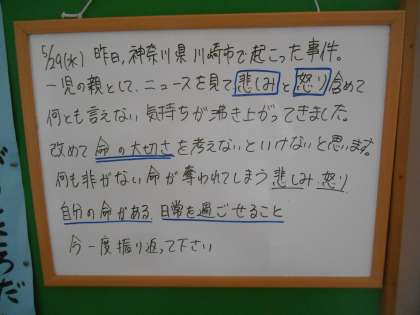 5/29(水) 昨日、神奈川県川崎市で起こった事件。
一児の親として、ニュースを見て悲しみと怒り含めて
何とも言えない気持ちが沸き上がってきました。
改めて命の大切さを考えないといけないと思います。
何も非がない命が奪われてしまう悲しみ 怒り
自分の命がある 日常を過ごせること
今一度振り返って下さい